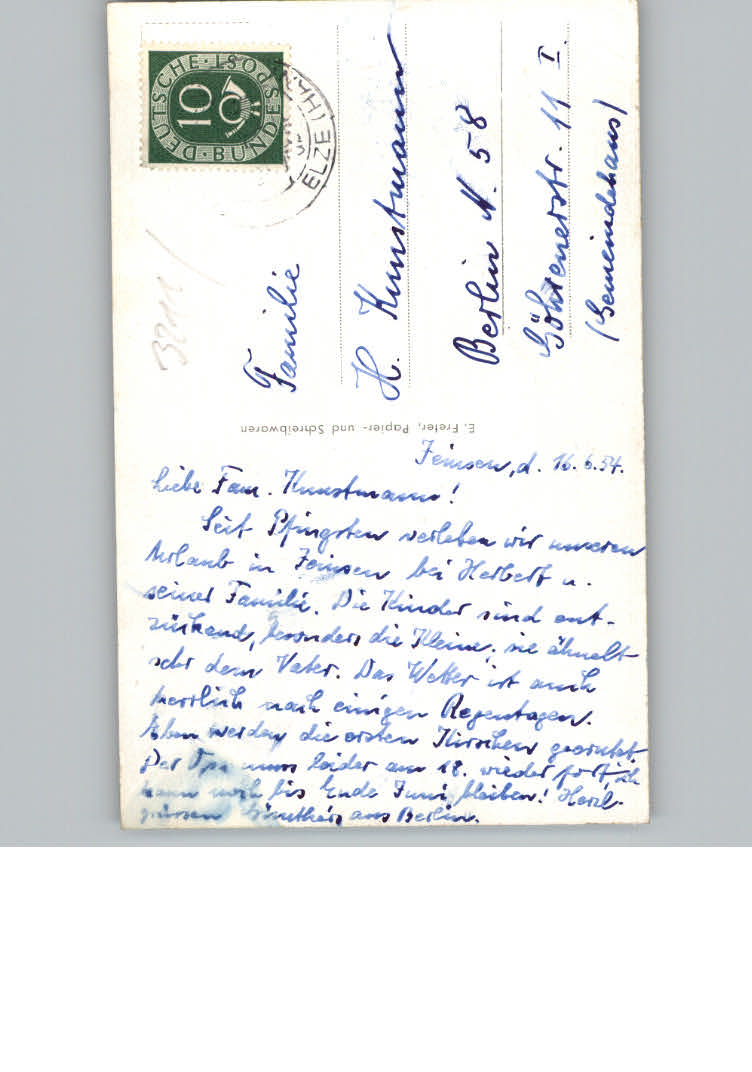 DEUTSCHE BUNDESPOST
10
ELZE (HAN
Familie
H. Kunstmann
Berlin N. 58
Göhrenerstr. 11 I.
(Gemeindehaus)
E. Freter, Papier- und Schreibwaren
Jeinsen, d. 16.6.54.
Liebe Fam. Kunstmann!
Seit Pfingsten verleben wir unseren
Urlaub in Jeinsen bei Herbert u.
seiner Familie. Die Kinder sind ent-
zückend, besonders die Kleine, sie ähnelt
sehr dem Vater. Das Wetter ist auch
herrlich nach einigen Regentagen.
Eben werden die ersten Kirschen geerntet.
Der Opa muss leider am 18. wieder fort, ich
kann noch bis Ende Juni bleiben! Herzl.
grüssen aus Berlin.